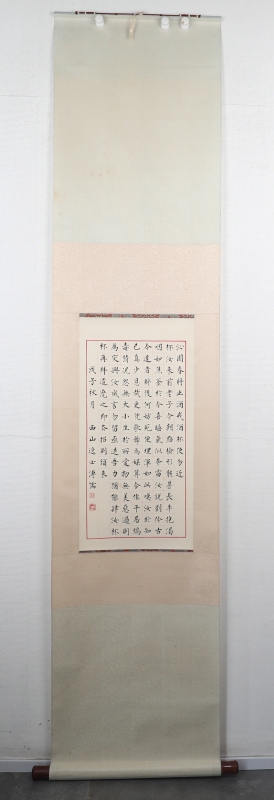 沁園春將止酒戒酒杯使勿近
杯汝來前老子今朝點檢形骸甚長年抱渴
咽如焦釜於今喜睡氣似奔雷汝說劉伶古
今達者醉後何妨死便埋渾如此嘆汝於知
己真少恩哉更憑歌舞為媒算合作平居鴆
毒猜況怨無大小生於所愛物無美惡過則
為災與汝成言勿留亟退吾力猶能肆汝杯
杯再拜道麾之即去招則須來
戊子秋月 西山逸士溥儒